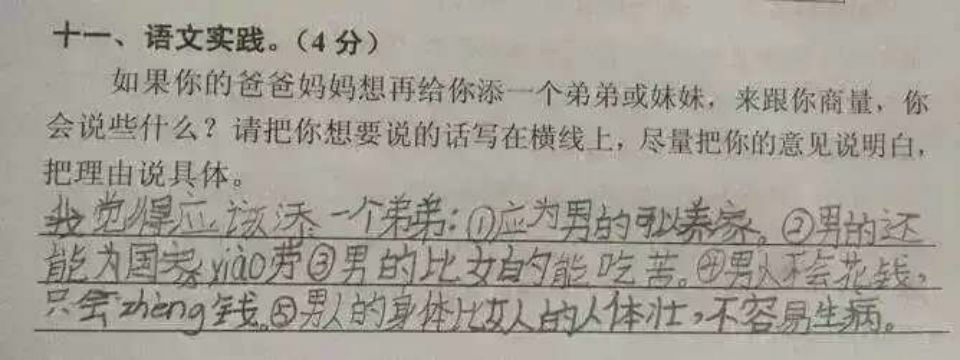 十一、语文实践。(4分)
如果你的爸爸妈妈想再给你添一个弟弟或妹妹，来跟你商量，你
会说些什么？请把你想要说的话写在横线上，尽量把你的意见说明白，
把理由说具体。
我觉得应该添一个弟弟:①应为男的可以养家。②男的还
能为国家xiào劳③男的比女的能吃苦。④男人不会花钱，
只会zhèng钱。⑤男人的身体比女人的人体壮，不容易生病。